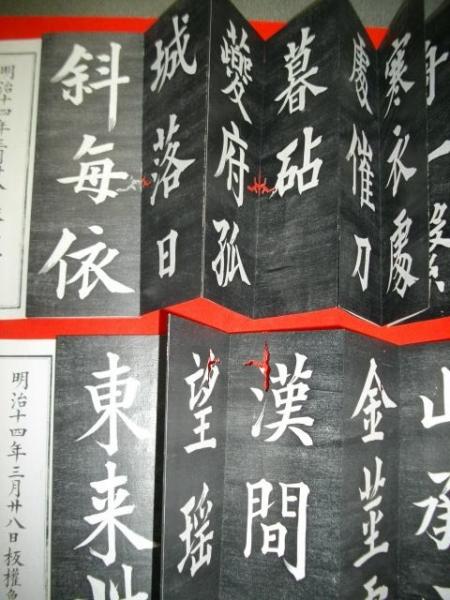 寒衣處
處催刀
暮砧
夔府孤
城落日
斜每依
明治十四年三月廿八
山承
金茎
漢間
望瑶
東来
明治十四年三月廿八日板權免